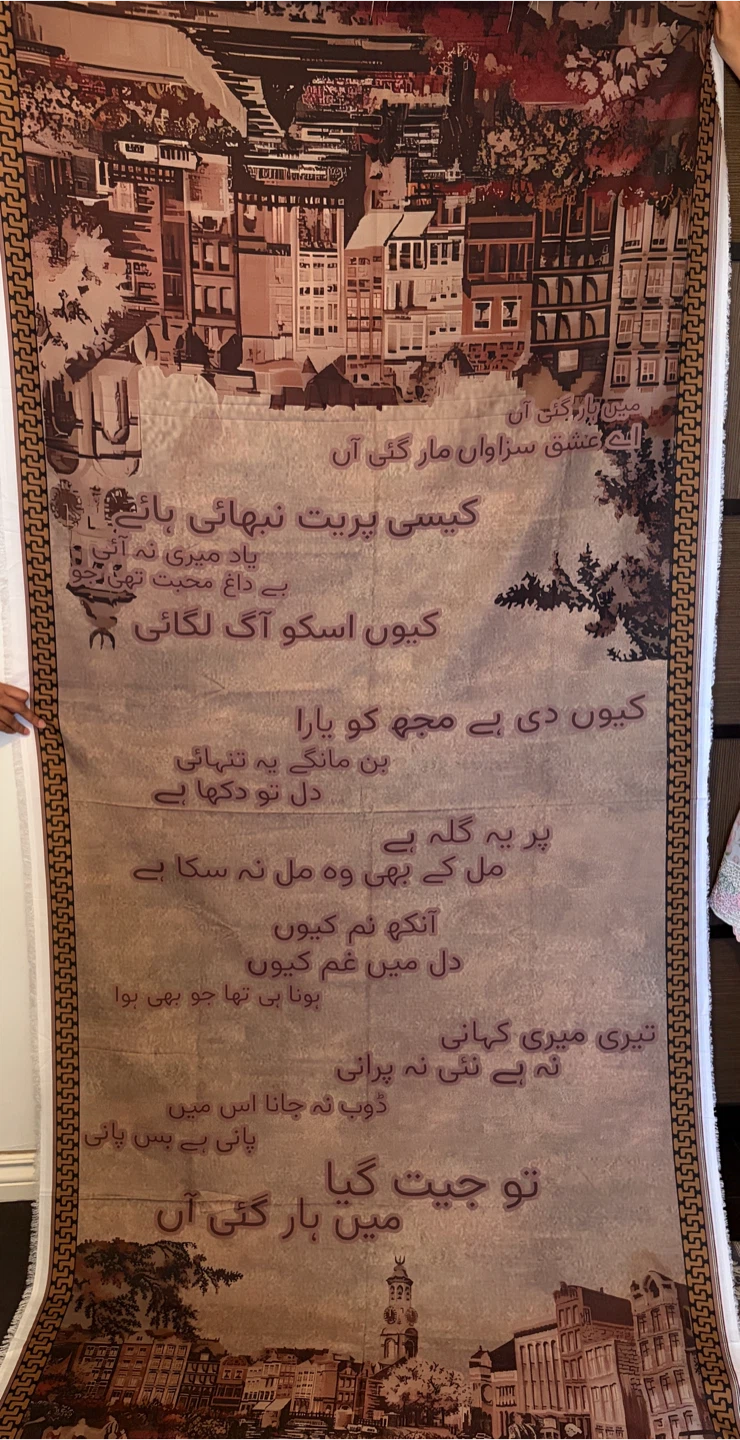 میں ہار گئی آں
اے عشق سزاواں مار گئی آں
کیسی پریت نبھائی ہائے
یاد میری نہ آئی
بے داغ محبت تھی جو
کیوں اسکو آگ لگائی
کیوں دی ہے مجھ کو یارا
بن مانگے یہ تنہائی
دل تو دکھا ہے
پر یہ گلہ ہے
مل کے بھی وہ مل نہ سکا ہے
آنکھ نم کیوں
دل میں غم کیوں
ہونا ہی تھا جو بھی ہوا
تیری میری کہانی
نہ ہے نئی نہ پرانی
ڈوب نہ جانا اس میں
پانی ہے بس پانی
تو جیت گیا
میں ہار گئی آں